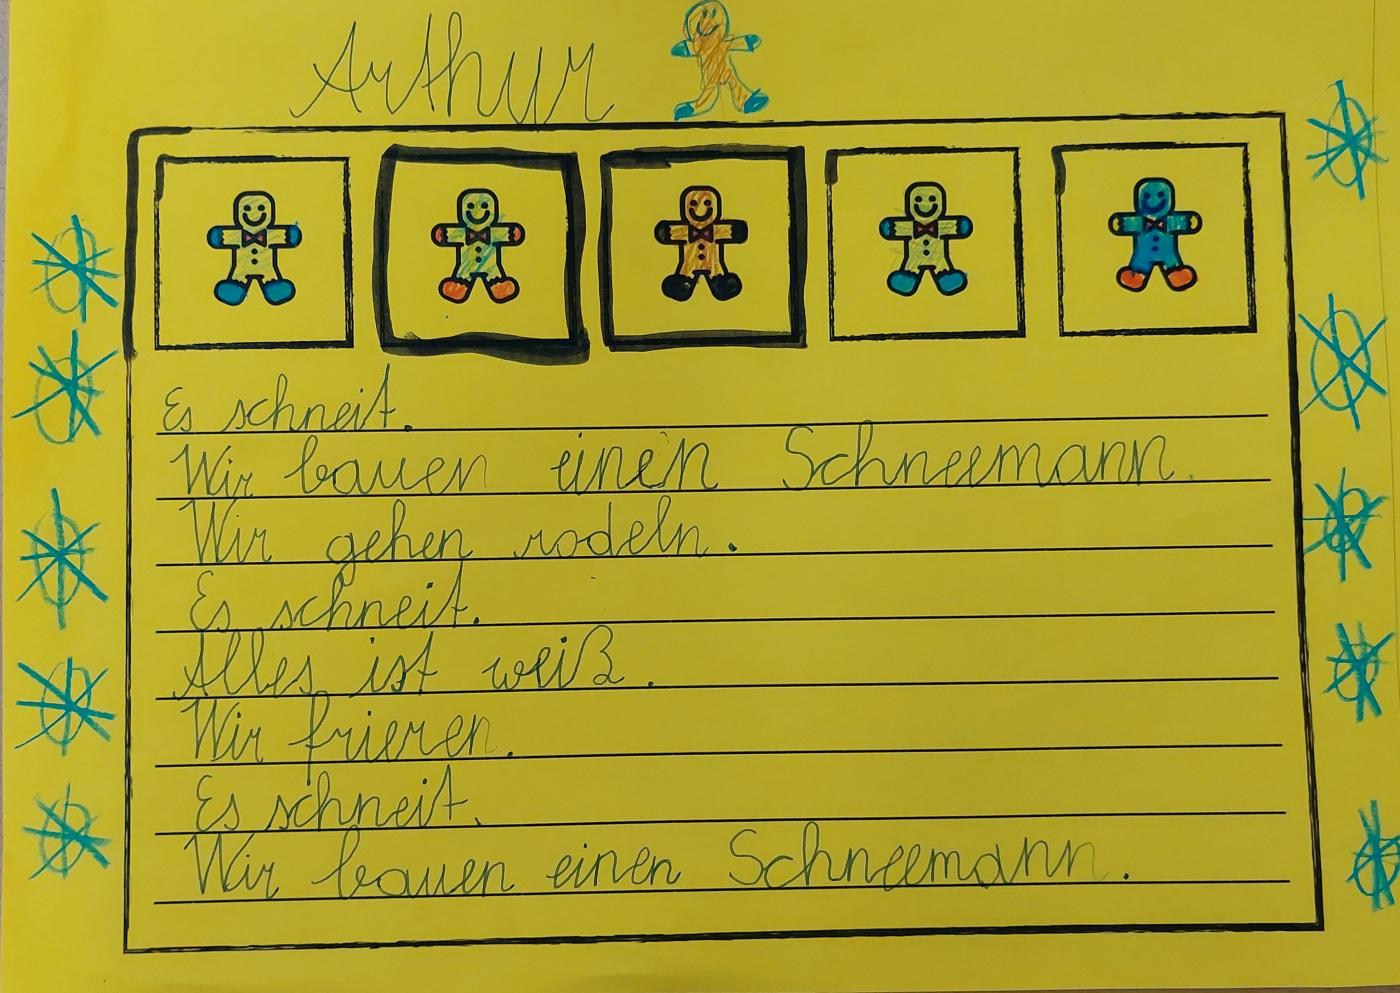 Arthur
Es schneit.
Wir bauen einen Schneemann.
Wir gehen rodeln.
Es schneit.
Alles ist weiß.
Wir frieren.
Es schneit.
Wir bauen einen Schneemann.